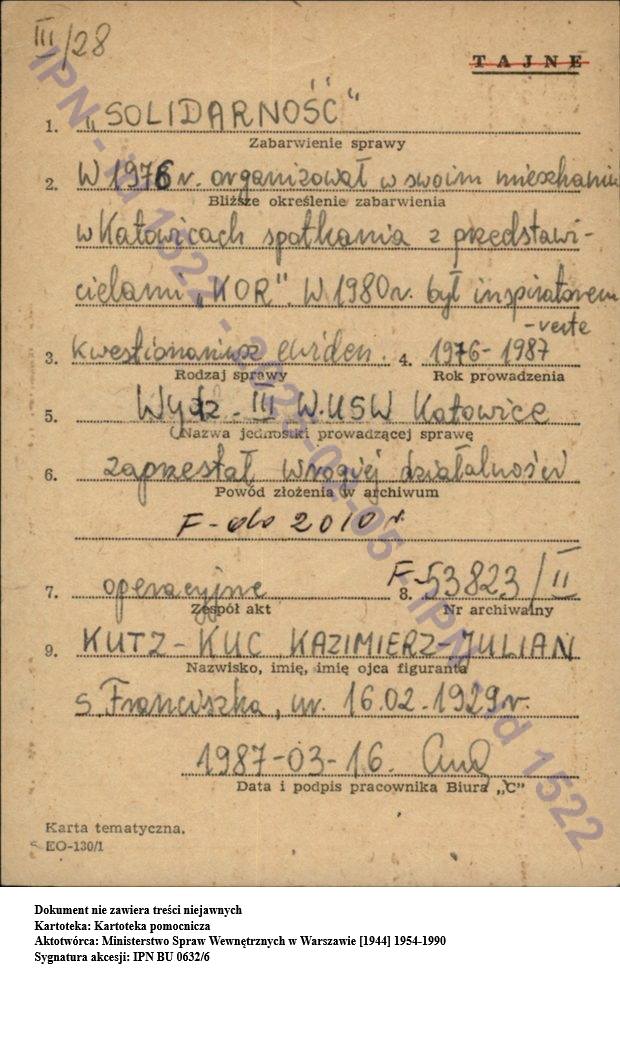 III/28
TAJNE
1. „SOLIDARNOŚĆ"
Zabarwienie sprawy
2. W 1976 r. organizował w swoim mieszkaniu
Bliższe określenie zabarwienia
w Katowicach spotkania z przedstawi-
cielami „KOR". W 1980 r. był inspiratorem
-verte
3. kwestionariusz ewiden. 4. 1976-1987
Rodzaj sprawy Rok prowadzenia
5. Wydz. III WUSW Katowice
Nazwa jednostki prowadzącej sprawę
6. zaprzestał wrogiej działalności
Powód złożenia w archiwum
F-do 2010 r.
7. operacyjne 8. F-53823/II
Zespół akt Nr archiwalny
9. KUTZ-KUC KAZIMIERZ-JULIAN
Nazwisko, imię, imię ojca figuranta
s. Franciszka, ur. 16.02.1929 r.
1987-03-16.
Data i podpis pracownika Biura „C"
Karta tematyczna.
EO-130/1
IPN - Id 1522 - IPN - Id 1522
Dokument nie zawiera treści niejawnych
Kartoteka: Kartoteka pomocnicza
Aktotwórca: Ministerstwo Spraw Wewnętrznych w Warszawie [1944] 1954-1990
Sygnatura akcesji: IPN BU 0632/6